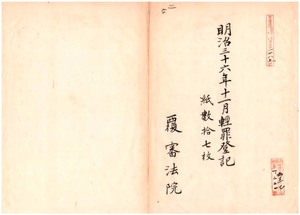 明治三十六年十一月輕罪登記
紙數拾七枚
覆審法院